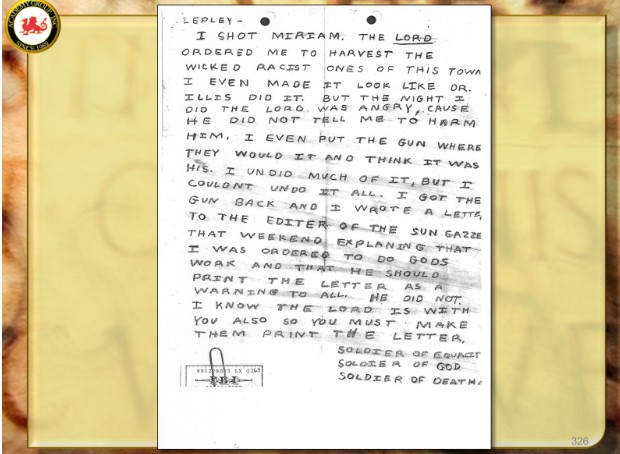 ACADEMY GROUP, INC.
SINCE 1989
LEPLEY -
I SHOT MIRIAM. THE LORD
ORDERED ME TO HARVEST THE
WICKED RACIST ONES OF THIS TOWN
I EVEN MADE IT LOOK LIKE DR.
ILLIS DID IT. BUT THE NIGHT I
DID THE LORD WAS ANGRY, CAUSE
HE DID NOT TELL ME TO HARM
HIM. I EVEN PUT THE GUN WHERE
THEY WOULD IT AND THINK IT WAS
HIS. I UNDID MUCH OF IT, BUT I
COULDNT UNDO IT ALL. I GOT THE
GUN BACK AND I WROTE A LETTE,
TO THE EDITER OF THE SUN GAZZE
THAT WEEKEND EXPLANING THAT
I WAS ORDERED TO DO GODS
WORK AND THAT HE SHOULD
PRINT THE LETTER AS A
WARNING TO ALL. HE DID NOT.
I KNOW THE LORD IS WITH
YOU ALSO SO YOU MUST MAKE
THEM PRINT THE LETTER.
SOLDIER OF EQUALIT
SOLDIER OF GOD
SOLDIER OF DEATH.
FBI
326